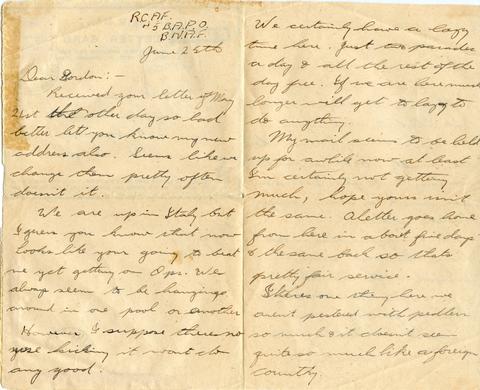 R.C.A.F.
#5 B.A.P.O.
B.N.A.F.
June 25th
Dear Gordon:-
Received your letter of May
21st the other day so had
better let you know my new
address also. Seems like we
change them pretty often
doesn't it.
We are up in Italy but
I guess you know that now
looks like your going to beat
me yet getting on Ops. We
always seem to be hanging
around in one pool or another
However I suppose theres no
use kicking it wont do
any good.
We certainly have a lazy
time here. Just two parades
a day & all the rest of the
day free. If we are here much
longer will get to lazy to
do anything.
My mail seems to be held
up for awhile now at least
I'm certainly not getting
much, hope yours isn't
the same. A letter goes home
from here in about five days
& the same back so thats
pretty fair service.
Theres one thing here we
arent pestered with pedlers
so much & it doesn't seem
quite so much like a foreign
country